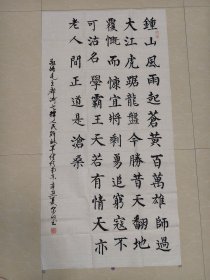 鍾山風雨起蒼黃百萬雄師過
大江虎踞龍盤今勝昔天翻地
覆慨而慷宜將剩勇追窮寇不
可沽名學霸王天若有情天亦
老人間正道是滄桑
毛主席 七律人民解放軍 南京